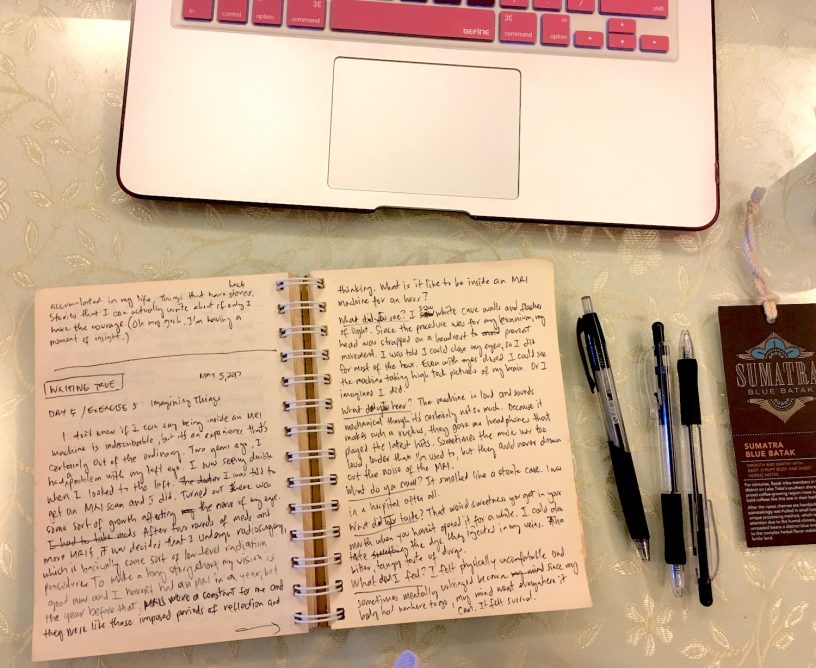 fn
control
option
command
BEFINE
command
alt
option
shift
back
accumulated in my life. Things that have stories.
Stories that I can actually write about if only I
have the courage. (Oh my gosh. I'm having a
moment of insight.)
WRITING TRUE
MAY 5, 2017
DAY 5 / EXERCISE 5 Imagining Things
I don't know if I can say being inside an MRI
machine is indescribable, but it's an experience that's
certainly out of the ordinary. Two years ago, I
had problem with my left eye. I was seeing double
when I looked to the left. The doctor I was told to
get an MRI scan and I did. Turned out there was
some sort of growth affecting the nerve of my eye.
I had to take meds After two rounds of meds and
more MRIs, it was decided that I undergo radiosurgery,
which is basically some sort of low level radiation
procedure. To make a long story short, my vision is
good now and I haven't had an MRI in a year, but
the year before that, MRIs were a constant for me and
they were like those imposed periods of reflection and
thinking. What is it like to be inside an MRI
machine for an hour?
What did you see? I saw white cave walls and flashes
of light. Since the procedure was for my cranium, my
head was strapped on a headrest to prevent
movement. I was told I could close my eyes, so I did
for most of the hour. Even with eyes closed I could see
the machine taking high tech pictures of my brain. Or I
imagined I did.
What did you hear? The machine is loud and sounds
mechanical though it's certainly not so much. Because it
makes such a ruckus, they gave me headphones that
played the latest hits. Sometimes the music was too
loud, louder than I'm used to, but they could never drown
out the noise of the MRI.
What do you smell? It smelled like a sterile cave. I was
in a hospital after all.
What did you taste? That weird sourness you get in your
mouth when you haven't opened it for a while. I could also
taste something the dye they injected in my veins. The
bitter, tangy taste of drugs.
What did I feel? I felt physically uncomfortable and
sometimes mentally unhinged because my mind since my
body had nowhere to go, my mind went alongwhere it
can. It felt surreal.
SUMATRA
BLUE BATAK
SUMATRA
BLUE BATAK
SMOOTH AND EARTHY WITH
DEEP, SYRUPY BODY AND SWEET
HERBAL NOTES